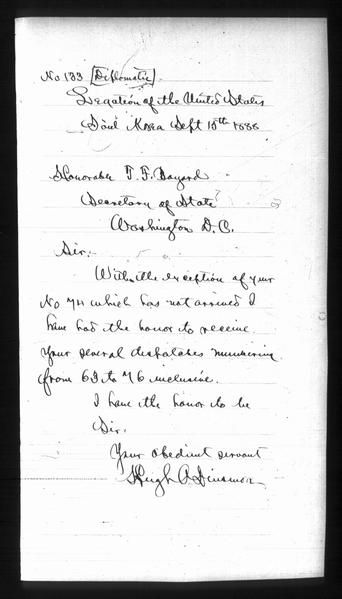 No 133 [Diplomatic]
Legation of the United States
Söul Korea Sept 15th 1888
Honorable T. F. Bayard
Secretary of State
Washington D.C.
Sir:
With the exception of your
No 74 which has not arrived I
have had the honor to receive
your several dispatches numbering
from 63 to 76 inclusive.
I have the honor to be
Sir.
Your obedient servant
Hugh A Dinsmore